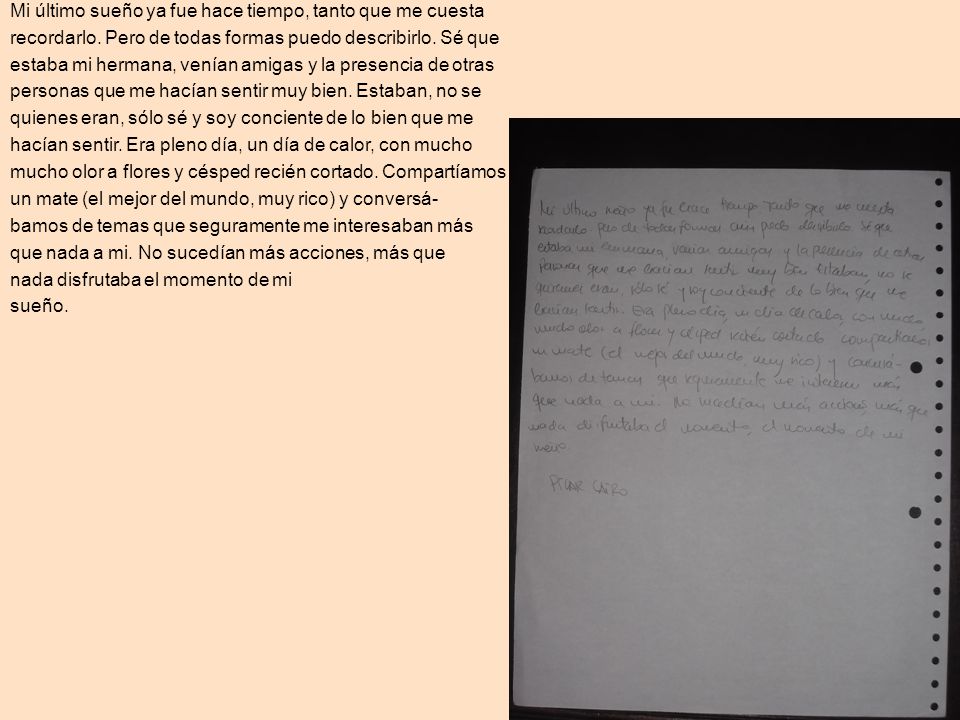 Mi último sueño ya fue hace tiempo, tanto que me cuesta
recordarlo. Pero de todas formas puedo describirlo. Sé que
estaba mi hermana, venían amigas y la presencia de otras
personas que me hacían sentir muy bien. Estaban, no se
quienes eran, sólo sé y soy conciente de lo bien que me
hacían sentir. Era pleno día, un día de calor, con mucho
mucho olor a flores y césped recién cortado. Compartíamos
un mate (el mejor del mundo, muy rico) y conversá-
bamos de temas que seguramente me interesaban más
que nada a mi. No sucedían más acciones, más que
nada disfrutaba el momento de mi
sueño.
Mi último sueño ya fue hace tiempo tanto que me cuesta
recordarlo pero de todas formas puedo describirlo Sé que
estaba mi hermana, venían amigas y la presencia de otras
personas que me hacían sentir muy bien estaban, no se
quienes eran, sólo sé y soy conciente de lo bien que me
hacían sentir. Era pleno día, un día de calor, con mucho
mucho olor a flores y césped recién cortado compartíamos
un mate (el mejor del mundo, muy rico) y conversá-
bamos de temas que seguramente me interesan más
que nada a mi. No sucedían más acciones, más que
nada disfrutaba el momento, el momento de mi
sueño.
PILAR CAIRO